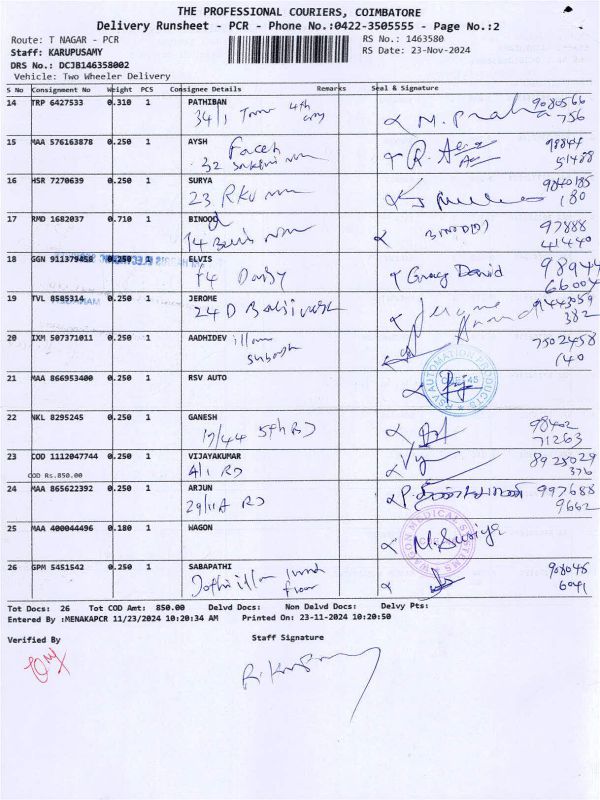 THE PROFESSIONAL COURIERS, COIMBATORE
Delivery Runsheet - PCR - Phone No.:0422-3505555 - Page No.:2
Route: T NAGAR - PCR RS No.: 1463580
Staff: KARUPUSAMY RS Date: 23-Nov-2024
DRS No.: DCJB146358002
Vehicle: Two Wheeler Delivery
S No Consignment No Weight PCS Consignee Details Remarks Seal & Signature
14 TRP 6427533 0.310 1 PATHIBAN 9080566
34/1 4th 756
15 MAA 576163878 0.250 1 AYSH 98844
32 51488
16 HSR 7270639 0.250 1 SURYA 9840185
23 RKV 180
17 RMD 1682037 0.710 1 BINOOd 97888
14 41440
18 GGN 911379458 0.250 1 ELVIS David 98944
f4 Daisy 66004
19 TVL 8585314 0.250 1 JEROME Jerome 9443059
24 D 382
20 IXM 507371011 0.250 1 AADHIDEV illam 7502458
140
21 MAA 866953400 0.250 1 RSV AUTO
RSV AUTOMATION PRODUCTS
22 NKL 8295245 0.250 1 GANESH 98402
17/44 5th RD 71263
23 COD 1112047744 0.250 1 VIJAYAKUMAR 8925029
COD Rs.850.00 4/1 RD 376
24 MAA 865622392 0.250 1 ARJUN 997688
29/11A RD 9662
25 MAA 400044496 0.180 1 WAGON
WAGON MEDICAL SYSTEMS
M. Suriya
26 GPM 5451542 0.250 1 SABAPATHI 908048
Jothi illam 6041
Tot Docs: 26 Tot COD Amt: 850.00 Delvd Docs: Non Delvd Docs: Delvy Pts:
Entered By :MENAKAPCR 11/23/2024 10:20:34 AM Printed On: 23-11-2024 10:20:50
Verified By Staff Signature